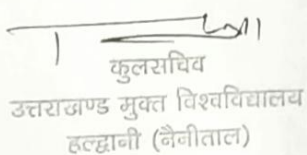 कुलसचिव
उत्तराखण्ड मुक्त विश्वविद्यालय
हल्द्वानी (नैनीताल)